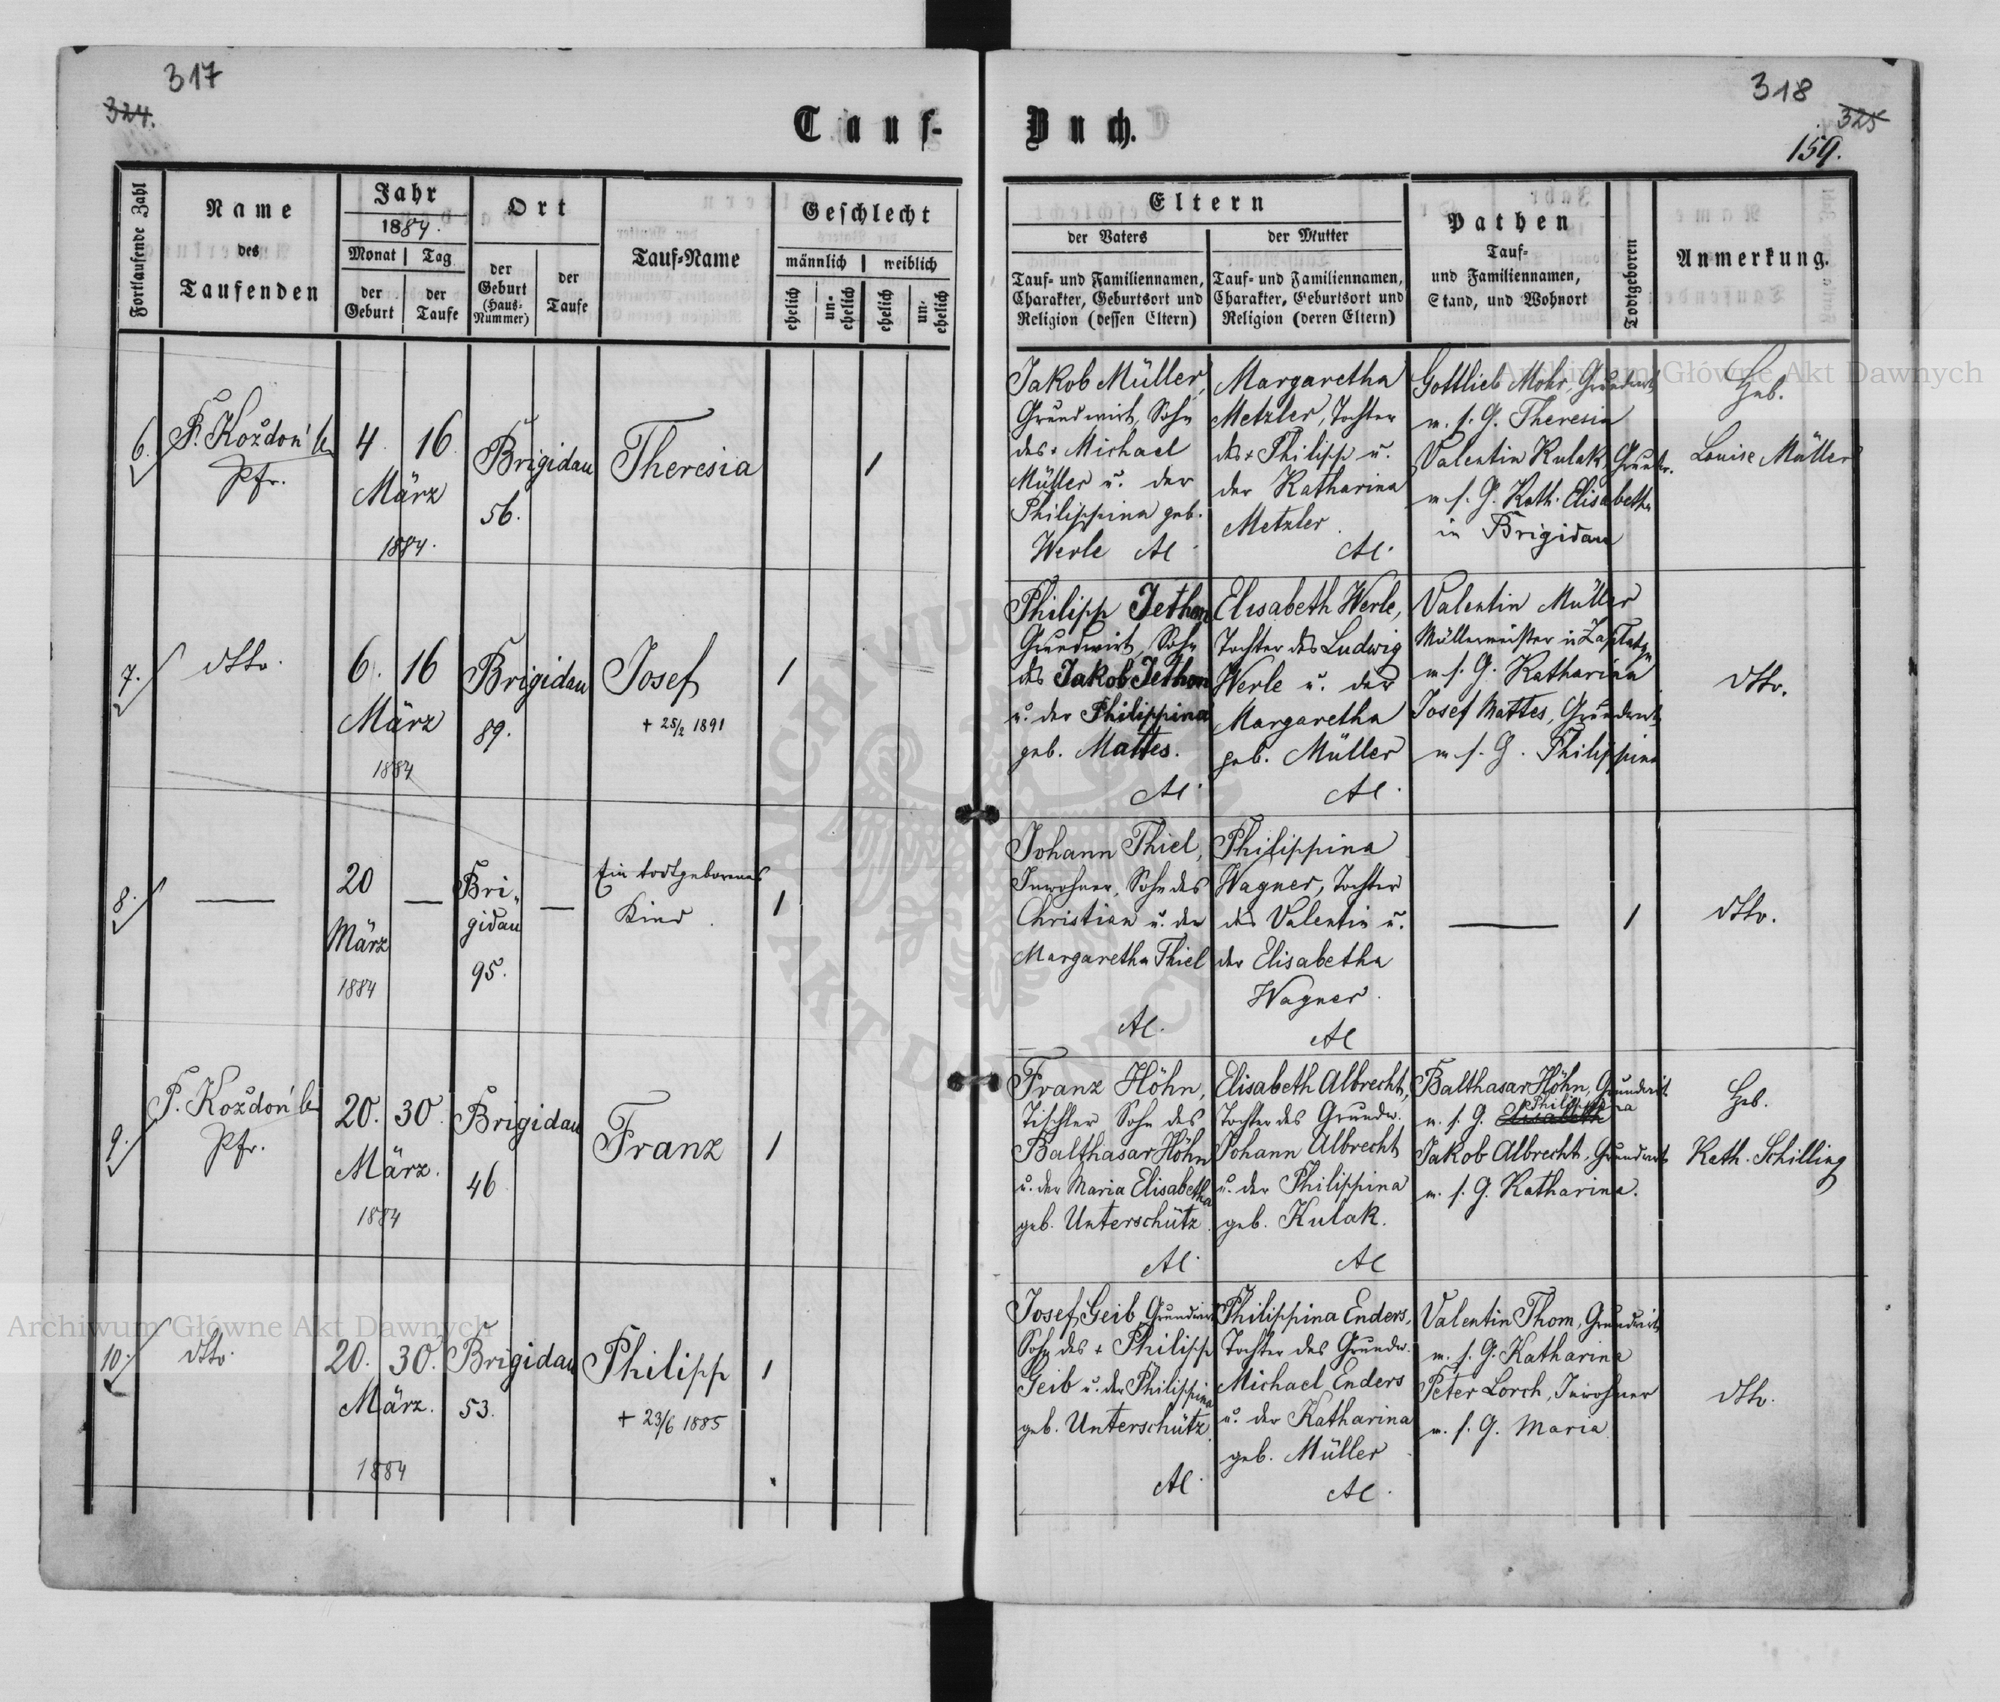 317
324.
318
325
159.
Tauf-Buch.
Fortlaufende Zahl
Name
des
Taufenden
Jahr
1884.
Monat | Tag
der
Geburt
der
Taufe
Ort
der
Geburt
(Haus-
Nummer)
der
Taufe
Tauf-Name
Geschlecht
männlich | weiblich
ehelich
un-
ehelich
ehelich
un-
ehelich
Eltern
der Vaters
Tauf- und Familiennamen,
Charakter, Geburtsort und
Religion (dessen Eltern)
der Mutter
Tauf- und Familiennamen,
Charakter, Geburtsort und
Religion (deren Eltern)
Pathen
Tauf-
und Familiennamen,
Stand, und Wohnort
Todtgeboren
Anmerkung.
6.
F. Koždoń
Pfr.
4 16
März
1884.
Brigidau
56.
Theresia
1
Jakob Müller,
Grundwirt, Sohn
des + Michael
Müller u. der
Philippina geb.
Werle AC
Margaretha
Metzler, Tochter
des + Philipp u.
der Katharina
Metzler
AC.
Gottlieb Mohr, Grundwirt
m. s. G. Theresia
Valentin Kulak, Grundw.
m. s. G. Kath. Elisabetha
in Brigidau
Heb.
Louise Müller
7.
dtto.
6. 16
März
1884
Brigidau
89.
Josef
+ 25/2 1891
1
Philipp Jethon
Grundwirt, Sohn
des Jakob Jethon
u. der Philippina
geb. Mattes.
AC.
Elisabeth Werle,
Tochter des Ludwig
Werle u. der
Margaretha
geb. Müller
AC.
Valentin Müller
Müllermeister in
m. s. G. Katharina
Josef Mattes, Grundwirt
m. s. G. Philippina
dtto.
8.
20
März
1884
Bri-
gidau
95.
Ein todtgeborenes
Kind.
1
Johann Thiel,
Inwohner, Sohn des
Christian u. der
Margaretha Thiel
AC.
Philippina
Wagner, Tochter
des Valentin u.
der Elisabetha
Wagner.
AC
1
dtto.
9.
F. Koždoń
Pfr.
20. 30.
März.
1884
Brigidau
46
Franz
1
Franz Höhn,
Tischler Sohn des
Balthasar Höhn
u. der Maria Elisabetha
geb. Unterschütz.
AC.
Elisabeth Albrecht,
Tochter des Grundw.
Johann Albrecht
u. der Philippina
geb. Kulak.
AC
Balthasar Höhn, Grundwirt
Philippina
m. s. G. Elisabeth
Jakob Albrecht, Grundwirt
m. s. G. Katharina.
Heb.
Kath. Schilling
10.
dtto.
20. 30.
März.
1884
Brigidau
53.
Philipp
+ 23/6 1885
1
Josef Geib, Grundwirt
Sohn des + Philipp
Geib u. der Philippina
geb. Unterschütz.
AC.
Philippina Enders,
Tochter des Grundw.
Michael Enders
u. der Katharina
geb. Müller
AC.
Valentin Thom, Grundwirt
m. s. G. Katharina
Peter Lorch, Inwohner
m. s. G. Maria
dtto.
Archiwum Główne Akt Dawnych
Archiwum Główne Akt Dawnych